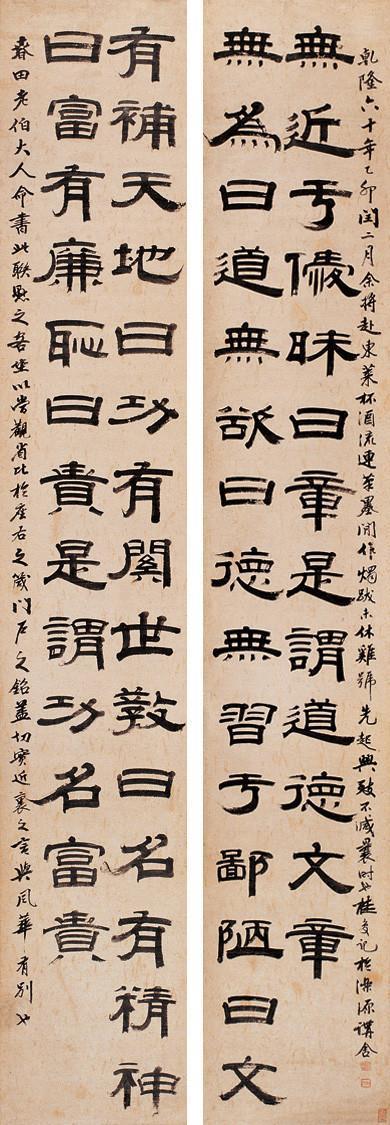 乾隆六十年乙卯閏二月余將赴東萊杯酒流連筆墨間作燭跋未休雞號先起興致不減曩時也桂馥記於濼源講舍
無為曰道無欲曰德無習于鄙陋曰文
無近于僾昧曰章是謂道德文章
有補天地曰功有關世教曰名有精神
曰富有廉恥曰貴是謂功名富貴
春田老伯大人命書此聯懸之吾坐以當觀省比於座右之箴門戶之銘蓋切實近裏之言與風華有別也